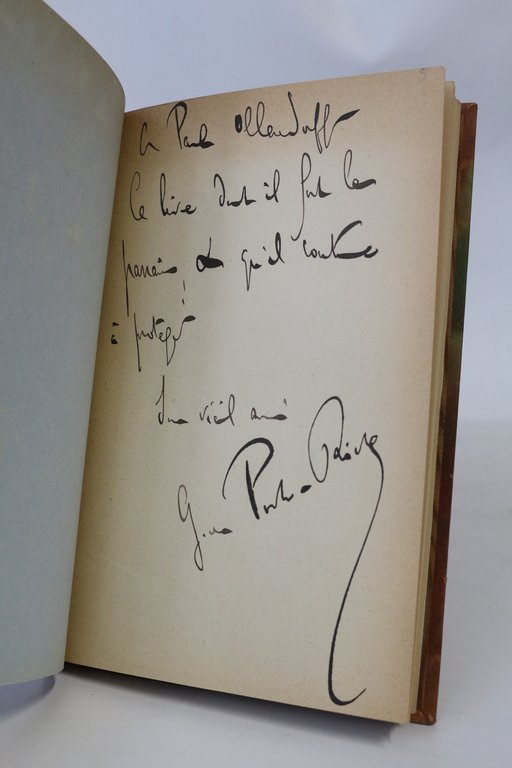 à Paul Ollendorff
Ce livre dont il fut le
parrain, et qu'il continue
à protéger
Son vieil ami
G. de Porto-Riche